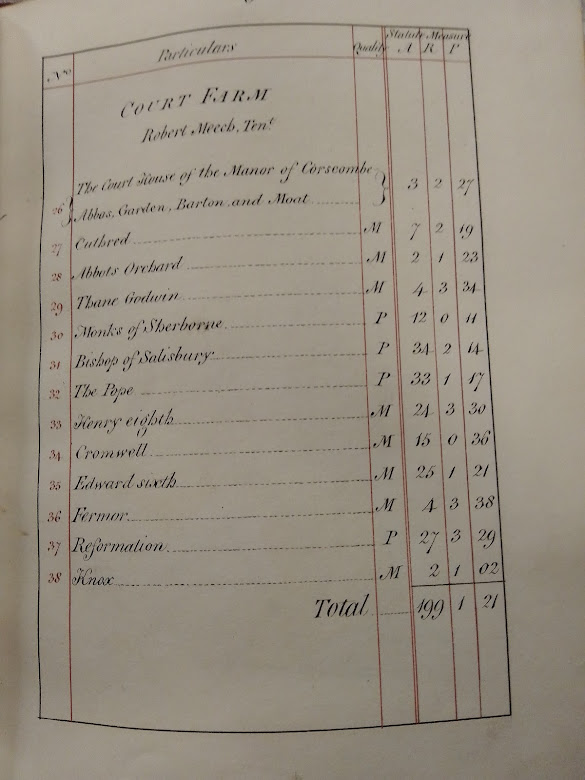 No. Particulars Quality Statute Measure
A R P
COURT FARM
Robert Meech, Tent.
The Court House of the Manor of Corscombe
26 Abbos, Garden, Barton and Moat 3 2 27
27 Cuthred M 7 2 19
28 Abbots Orchard M 2 1 23
29 Thane Godwin M 4 3 34
30 Monks of Sherborne P 12 0 11
31 Bishop of Salisbury P 34 2 14
32 The Pope P 33 1 17
33 Henry eighth M 24 3 30
34 Cromwell M 15 0 36
35 Edward sixth M 25 1 21
36 Fermor M 4 3 38
37 Reformation P 27 3 29
38 Knox M 2 1 02
Total 199 1 21